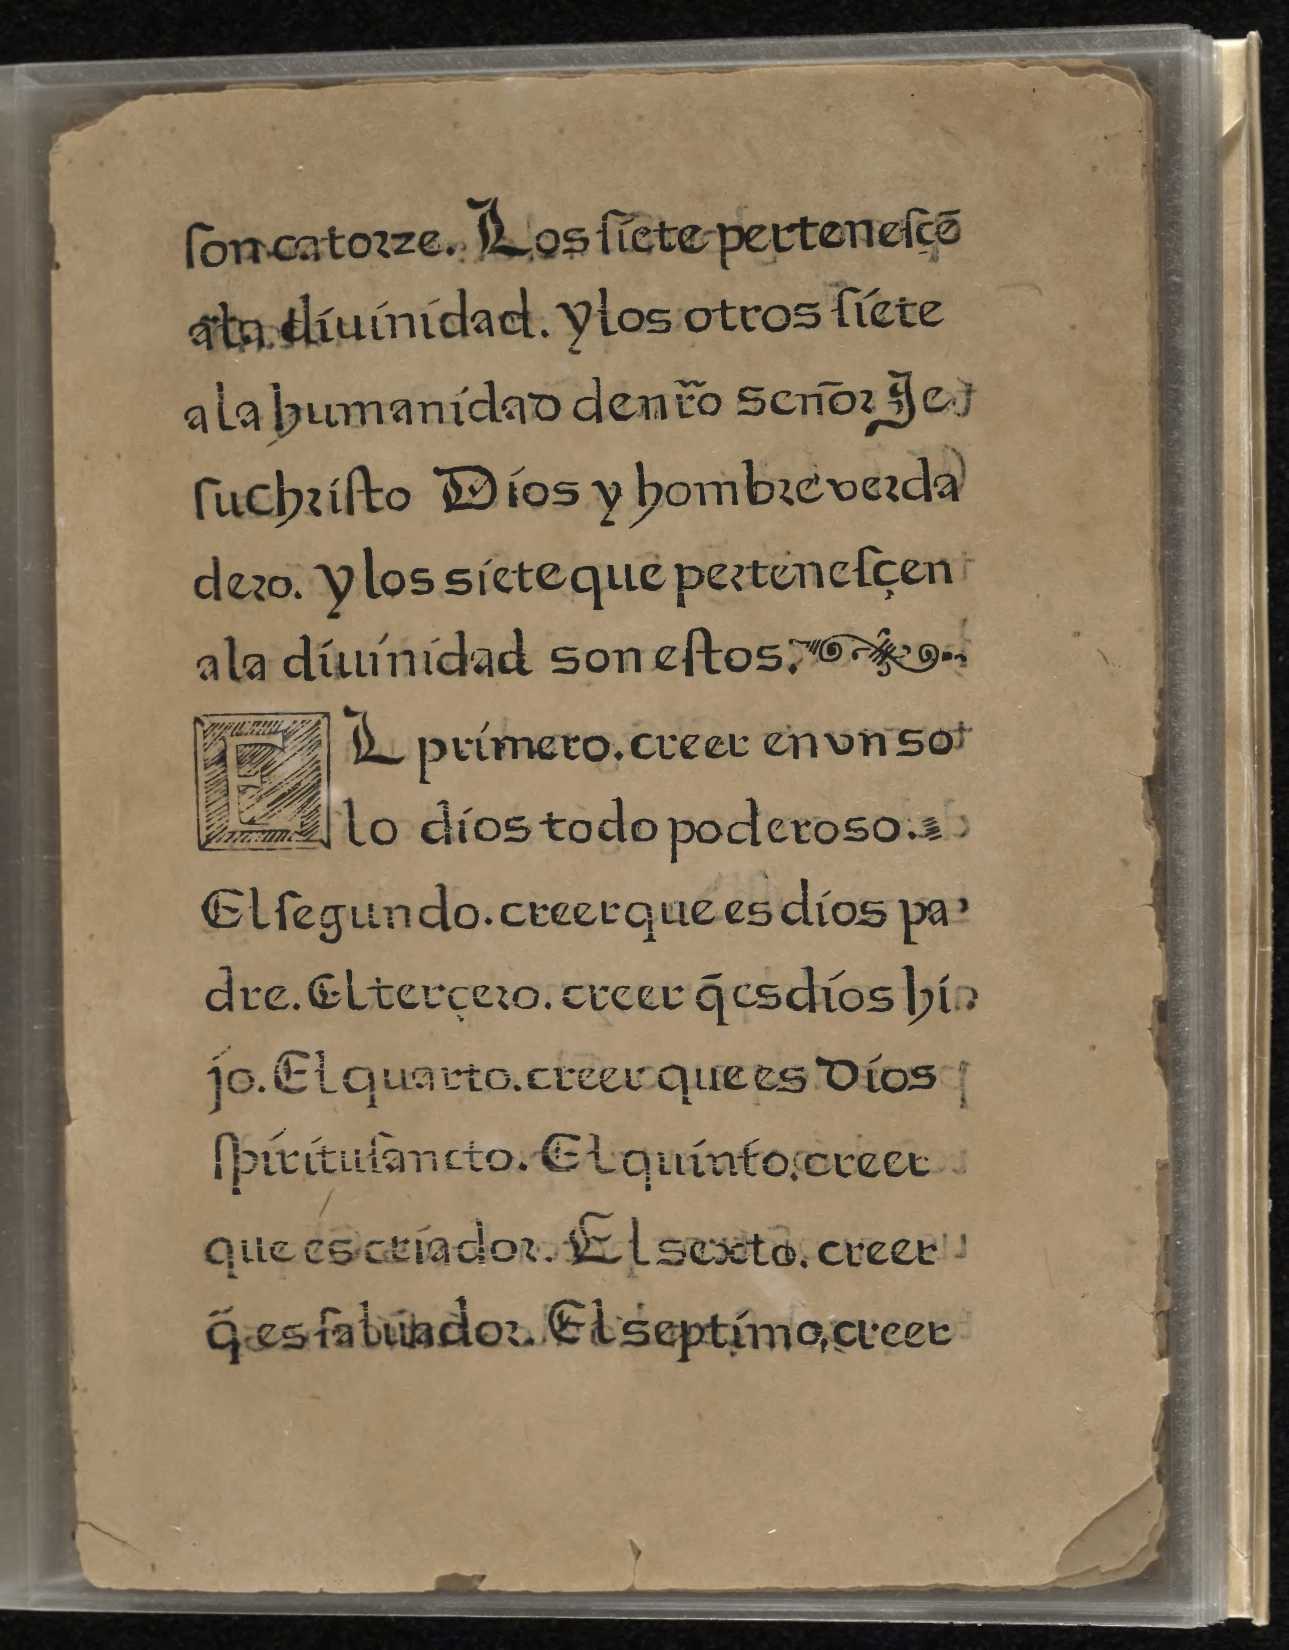 ſon catorze. Los ſiete perteneſçē
ala diuinidad. y los otros ſiete
ala humanidad de nr̃o Señor Je
ſuchriſto Dios y hombre verda
dero. y los siete que perteneſçen
ala diuinidad son eſtos.
EL primero. creer en vn so
lo dios todo poderoso.
El ſegundo. creer que es dios pa
dre. El terçero. creer q̃ es dios hi
jo. El quarto. creer que es Dios
ſpirituſancto. El quinto. creer
que es criador. El sexto. creer
q̃ es ſaluador. El septimo, creer